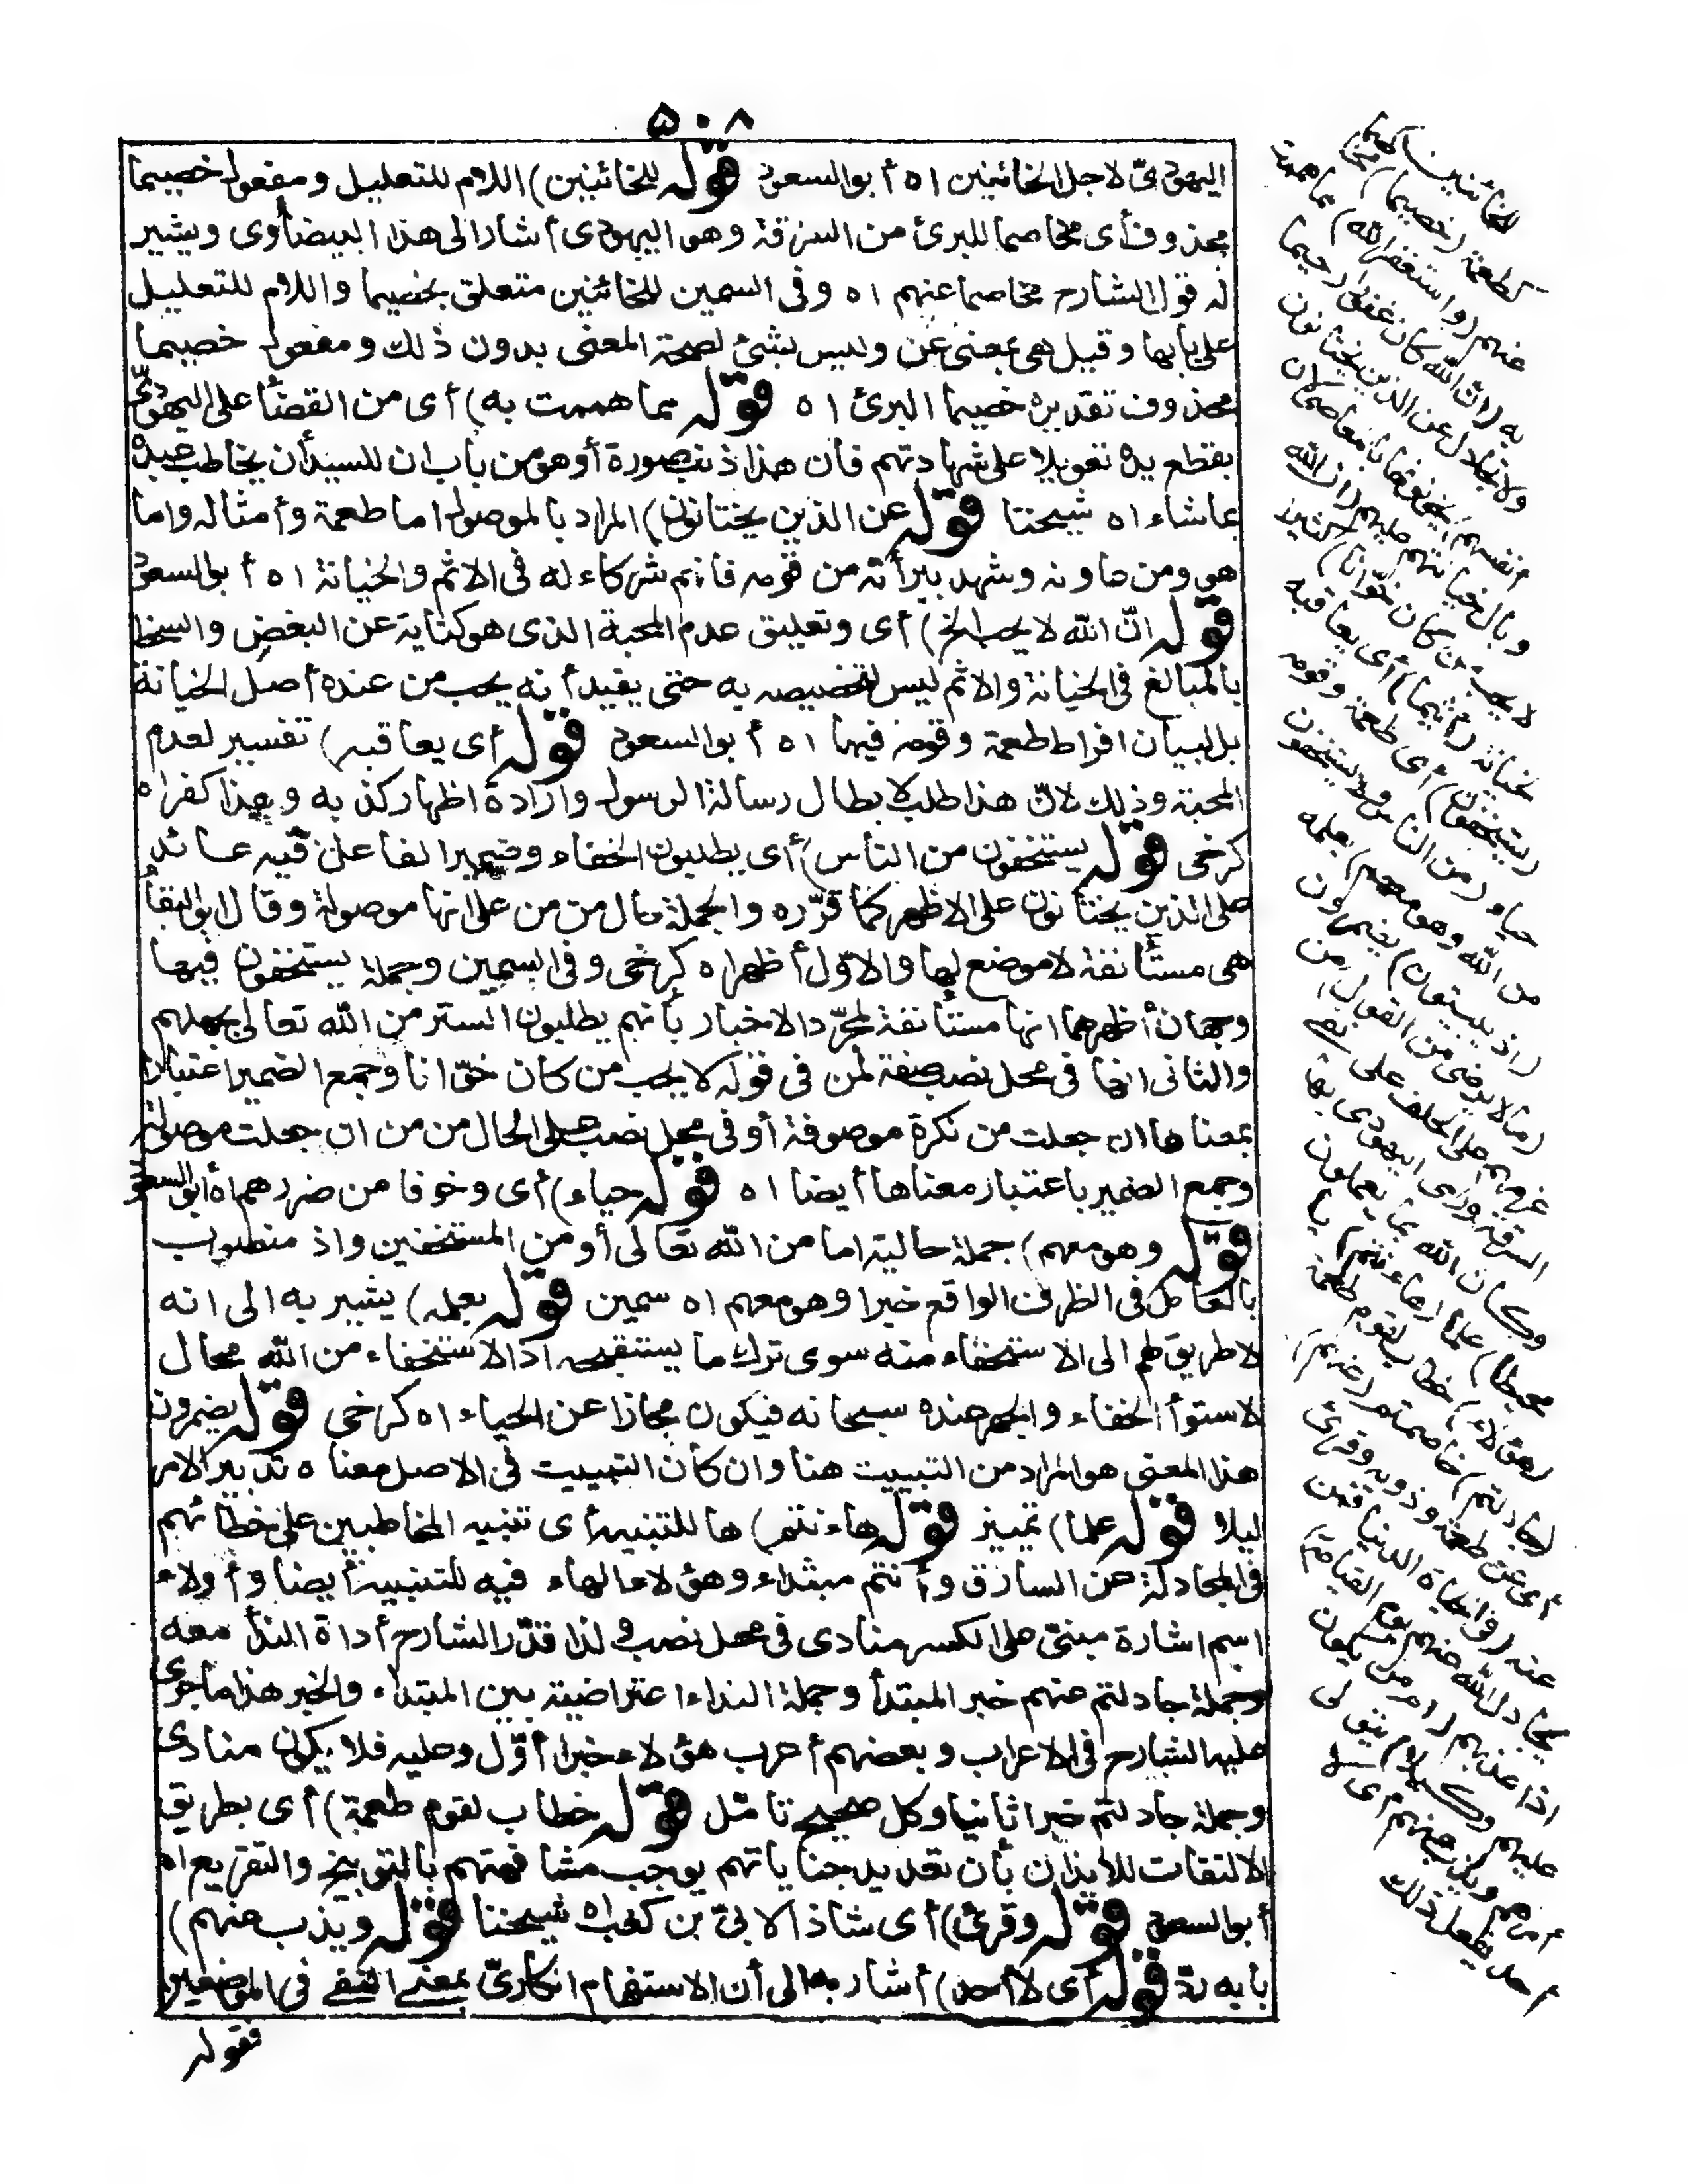 ٥٠٨
اليهودىّ لاجل الخائنين اه أبو السعود قوله للخائنين) اللام للتعليل ومفعول خصيما
محذوف أى مخاصما للبرئ من السرقة وهو اليهودى أشار الى هذا البيضاوى ويشير
له قول الشارح مخاصما عنهم اه وفى السمين للخائنين متعلق بخصيما واللام للتعليل
على بابها وقيل هى بمعنى عن وليس بشئ لصحة المعنى بدون ذلك ومفعول خصيما
محذوف تقديره خصيما البرئ اه قوله مما هممت به) أى من القضاء على اليهودىّ
بقطع يده تعويلا على شهادتهم فان هذا ذنب صورة أو هو من باب ان للسيد أن يخاطب عبده
بما شاء اه شيخنا قوله عن الذين يختانون) المراد بالموصول اما طعمة وأمثاله واما
هو ومن عاونه وشهد ببرأته من قومه فانهم شركاء له فى الاثم والخيانة اه أبو السعود
قوله انّ الله لا يحب الخ) أى وتعليق عدم المحبة الذى هو كناية عن البغض والسخط
بالمبالغ فى الخيانة والاثم ليس لتخصيصه به حتى يفيد أنه يحب من عنده أصل الخيانة
بل لبيان افراط طعمة وقومه فيها اه أبو السعود قوله أى يعاقبه) تفسير لعدم
المحبة وذلك لانّ هذا طلب لابطال رسالة الرسول وارادة اظهار كذبه وهذا كفر اه
كرخى قوله يستخفون من الناس) أى يطلبون الخفاء وضمير الفاعل فيه عائد
على الذين يختانون على الاظهر كما قرّره والجملة حال من من على انها موصولة وقال ابو البقاء
هى مستأنفة لا موضع لها والاوّل أظهر اه كرخى وفى السمين وجملة يستخفون فيها
وجهان أظهرهما انها مستأنفة لمجرّد الاخبار بأنهم يطلبون الستر من الله تعالى بجهلهم
والثانى انها فى محل نصب صفة لمن فى قوله لا يحب من كان خوّانا وجمع الضمير اعتبارا
بمعناها ان جعلت من نكرة موصوفة أو فى محل نصب على الحال من من ان جعلت موصولة
وجمع الضمير باعتبار معناها أيضا اه قوله حياء) أى وخوفا من ضررهم اه أبو السعود
قوله وهو معهم) جملة حالية اما من الله تعالى أو من المستخفين واذ منصوب
بالعامل فى الظرف الواقع خبرا وهو معهم اه سمين قوله بعلمه) يشير به الى انه
لا طريق لهم الى الاستخفاء منه سوى ترك ما يستقبحه اذ الاستخفاء من الله محال
لاستواء الخفاء والجهر عنده سبحانه فيكون مجازا عن الحياء اه كرخى قوله يضمرون
هذا المعنى هو المراد من التبييت هنا وان كان التبييت فى الاصل معناه تدبير الامر
ليلا قوله علما) تمييز قوله هاءنتم) ها للتنبيه أى تنبيه المخاطبين على خطائهم
فى المجادلة عن السارق وأنتم مبتداء وهؤلاء الهاء فيه للتنبيه أيضا وأولاء
اسم اشارة مبنىّ على الكسر منادى فى محل نصب ولذا قدّر الشارح أداة النداء معه
وجملة جادلتم عنهم خبر المبتدأ وجملة النداء اعتراضية بين المبتداء والخبر هذا ما جرى
عليه الشارح فى الاعراب وبعضهم أعرب هؤلاء خبرا أوّل وعليه فلا يكون منادى
وجملة جادلتم خبرا ثانيا وكل صحيح تامّل قوله خطاب لقوم طعمة) أى بطريق
الالتفات للايذان بأن تعديد جناياتهم يوجب مشافهتهم بالتوبيخ والتقريع اه
أبو السعود قوله وقرئ) أى شاذا لابىّ بن كعب اه شيخنا قوله ويذب عنهم)
بابه ردّ قوله أى لا أحد) أشار به الى أن الاستفهام انكارىّ بمعنى النفى فى الموضعين
فقوله
للخائنين) كطعمة (خصيما) مخاصما
عنهم (واستغفر الله) مما هممت
به (ان الله كان غفورا رحيما
ولا تجادل عن الذين يختانون
أنفسهم) يخونونها بالمعاصى لان
وبال خيانتهم عليهم (ان الله
لا يحب من كان خوّانا) كثير
الخيانة (أثيما) أى يعاقبه
(يستخفون) أى طعمة وقومه
حياء (من الناس ولا يستخفون
من الله وهو معهم) بعلمه
(اذ يبيتون) يضمرون
(ما لا يرضى من القول) من
عزمهم على الحلف على نفى
السرقة ورمى اليهودى بها
وكان الله بما يعملون
محيطا) علما (هاءنتم) يا
(هؤلاء) خطاب لقوم طعمة
(جادلتم) خاصمتم (عنهم)
أى عن طعمة وذويه وقرئ
عنه (فى الحياة الدنيا فمن
يجادل الله عنهم يوم القيامة)
اذا عذبهم (أم من يكون
عليهم وكيلا) يتولى
أمرهم ويذب عنهم أى لا
أحد يفعل ذلك